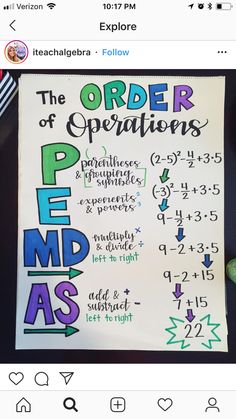 Verizon 10:17 PM
Explore
iteachalgebra • Follow
The ORDER
of Operations
P parentheses & [grouping symbols]
E exponents & powers
MD multiply × & divide ÷ left to right
AS add + & subtract - left to right
(2-5)² - 4/2 + 3·5
(-3)² - 4/2 + 3·5
9 - 4/2 + 3·5
9 - 2 + 3·5
9 - 2 + 15
7 + 15
22